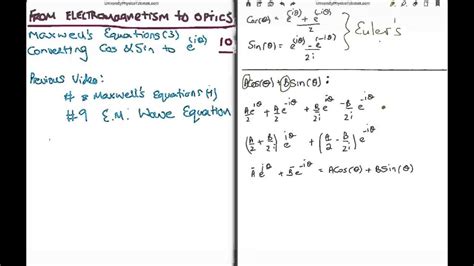 UniversityPhysicsTutorials.com
FROM ELECTROMAGNETISM TO OPTICS
Maxwell's Equations(3)
Converting Cos & Sin to e^(iθ)
10
Previous Video:
# 8 Maxwell's Equations(4)
#9 E.M. Wave Equation
UniversityPhysicsTutorials.com
Cos(θ) = (e^(iθ) + e^(-iθ))/2
Sin(θ) = (e^(iθ) - e^(-iθ))/2i
Euler's
ACos(θ) + BSin(θ) :
A/2 e^(iθ) + A/2 e^(-iθ) + B/2i e^(iθ) - B/2i e^(-iθ) :
(A/2 + B/2i) e^(iθ) + (A/2 - B/2i) e^(-iθ)
Ā e^(iθ) + B̄ e^(-iθ) = ACos(θ) + BSin(θ)